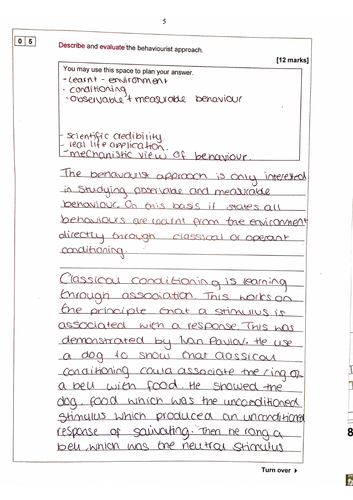 5
0 5
Describe and evaluate the behaviourist approach.
[12 marks]
You may use this space to plan your answer.
- learnt - environment
- conditioning
- observable + measurable behaviour
- scientific credibility
- real life application.
- mechanistic view of behaviour.
The behaviourist approach is only interested
in studying observable and measurable
behaviour. On this basis it states all
behaviours are learnt from the environment
directly through classical or operant
conditioning.
Classical conditioning is learning
through association. This works on
the principle that a stimulus is
associated with a response. This was
demonstrated by Ivan Pavlov. He use
a dog to show that classical
conditioning could associate the ring of
a bell with food. He showed the
dog, food which was the unconditioned
stimulus which produced an unconditioned
response of salivating. Then he rang a
bell which was the neutral stimulus
Turn over
8